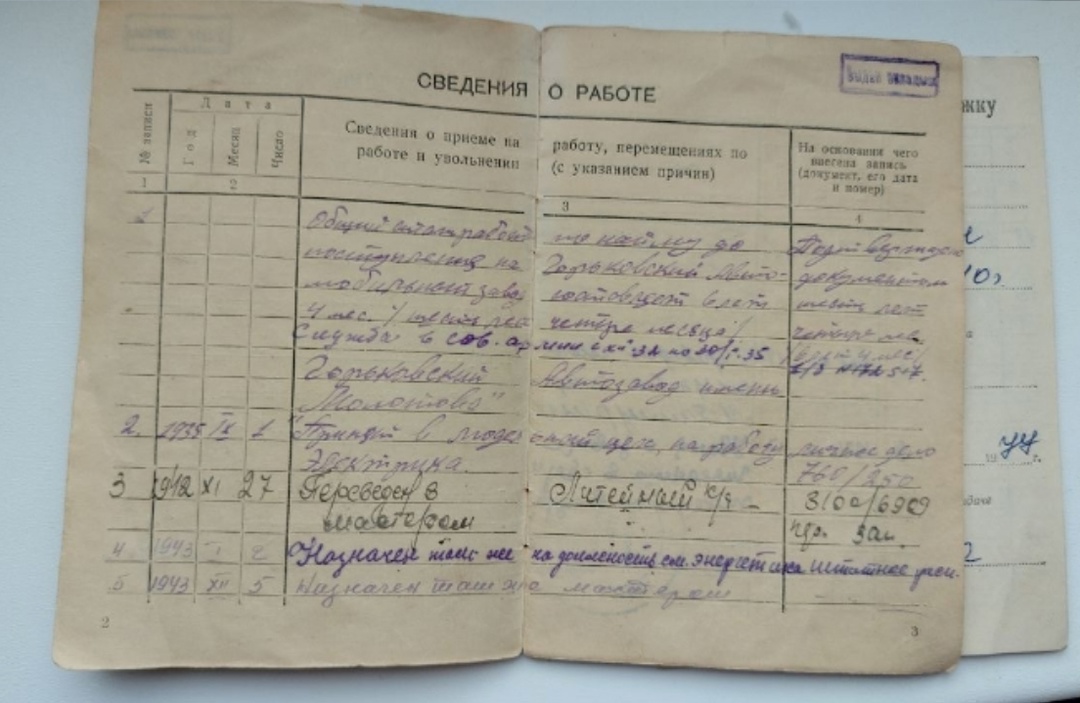 СВЕДЕНИЯ О РАБОТЕ
№ записи
Дата
Год
Месяц
Число
Сведения о приеме на работу, перемещениях по
работе и увольнении (с указанием причин)
На основании чего
внесена запись
(документ, его дата
и номер)
1
3
4
1
Общий стаж работы по найму до
поступления на Горьковский Авто-
мобильный завод составляет 6 лет
4 мес. /шесть лет четыре месяца/
Служба в сов. армии с XII-32 по 30/I-35
Подтвержден
документами
шесть лет
четыре мес.
Горьковский Автозавод имени
Молотова"
2. 1935 IX 1 "Принят в цех, на работу личное дело
Электрика. 760/250
3 1942 XI 27 Переведен в Литейный 3100/6909
мастером
4 1943 2 Назначен там же на должность см. энергетика штатное
5 1943 XII 5 Назначен там же мастером
2
3
жку
1977 г.